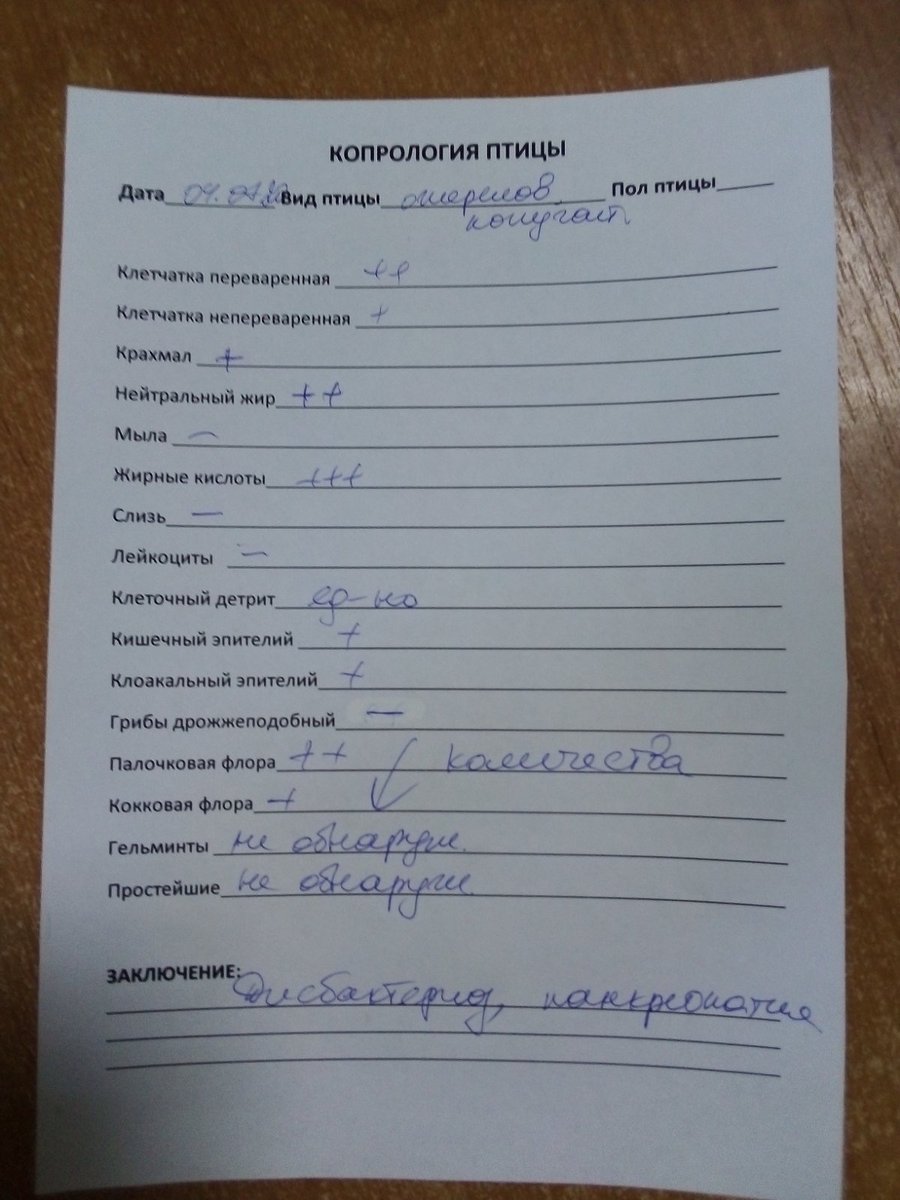 КОПРОЛОГИЯ ПТИЦЫ
Дата 04. Вид птицы ожерелов Пол птицы
попугай
Клетчатка переваренная ++
Клетчатка непереваренная +
Крахмал +
Нейтральный жир ++
Мыла —
Жирные кислоты +++
Слизь —
Лейкоциты —
Клеточный детрит ед-но
Кишечный эпителий +
Клоакальный эпителий +
Грибы дрожжеподобный —
Палочковая флора ++ ↓ количества
Кокковая флора +
Гельминты не обнаруж.
Простейшие не обнаруж
ЗАКЛЮЧЕНИЕ: Дисбактериоз, панкреопатия